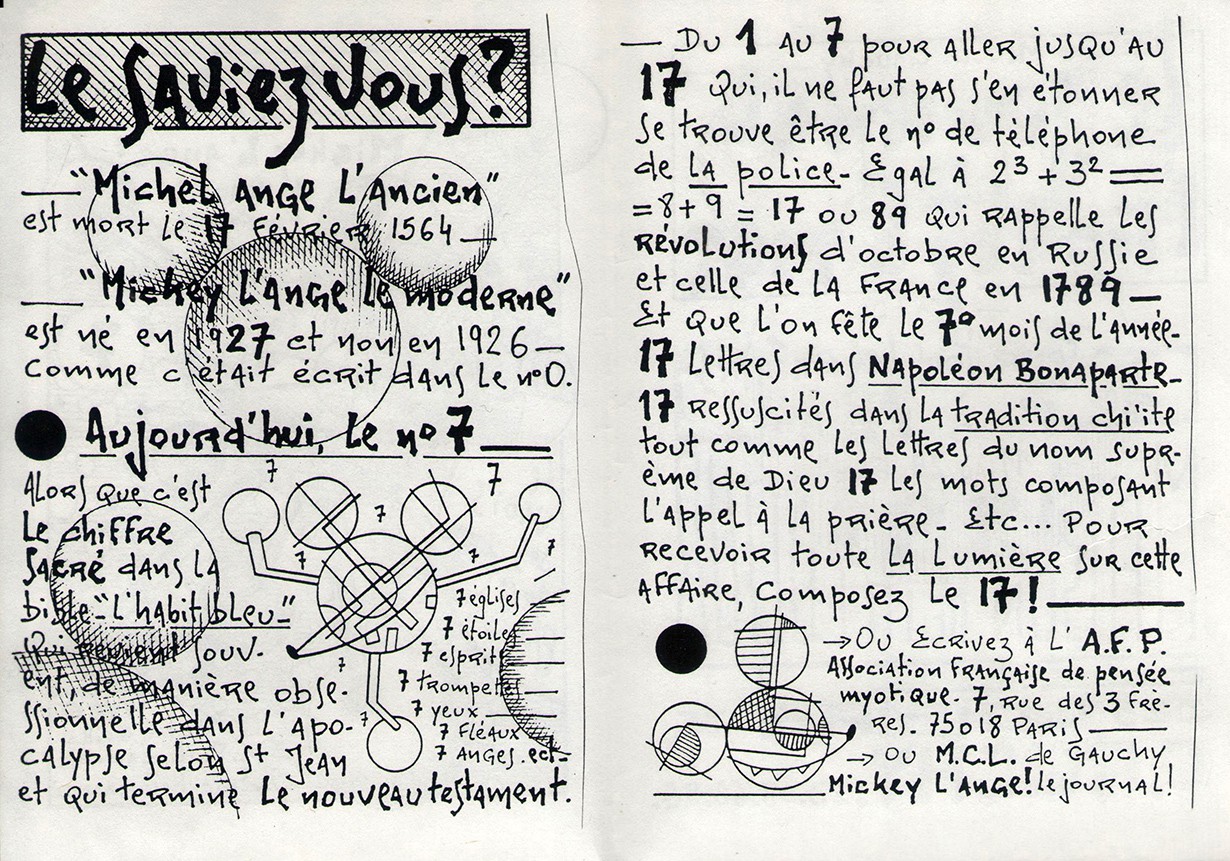 Le Saviez Vous ?
— "Michel ange L'Ancien"
est mort le 17 Février 1564 —
— "Mickey L'ange le moderne"
est né en 1927 et non en 1926 —
Comme c'était écrit dans Le n° 0.
Aujourd'hui, Le n° 7 —
Alors que c'est
Le chiffre
Sacré dans la
bible - "L'habit bleu" -
Qui revient souv-
ent, de manière obse-
ssionnelle dans L'Apo-
calypse selon St Jean
et qui termine Le nouveau testament.
7
7
7
7
7
7
7
7
7 églises
7 étoiles
7 esprits
7 trompettes
7 yeux —
7 Fléaux
7 Anges. ect-
— Du 1 au 7 pour aller jusqu'au
17 Qui, il ne faut pas s'en étonner
se trouve être Le n° de téléphone
de LA police - Egal à 2³ + 3² =
= 8 + 9 = 17 ou 89 qui rappelle Les
révolutions d'octobre en Russie
et celle de la France en 1789 —
Et que L'on fête Le 7° mois de l'année -
17 Lettres dans Napoléon Bonaparte -
17 ressuscités dans la tradition chi'ite
tout comme Les Lettres du nom supr-
ème de Dieu 17 Les mots composant
L'appel à la prière - Etc... Pour
recevoir toute La Lumière sur cette
affaire, Composez Le 17 ! —
→ Ou Ecrivez à L' A.F.P.
Association Française de pensée
myotique - 7, rue des 3 Frè-
res. 75018 Paris —
→ ou M.C.L. de Gauchy
Mickey L'Ange ! le journal !